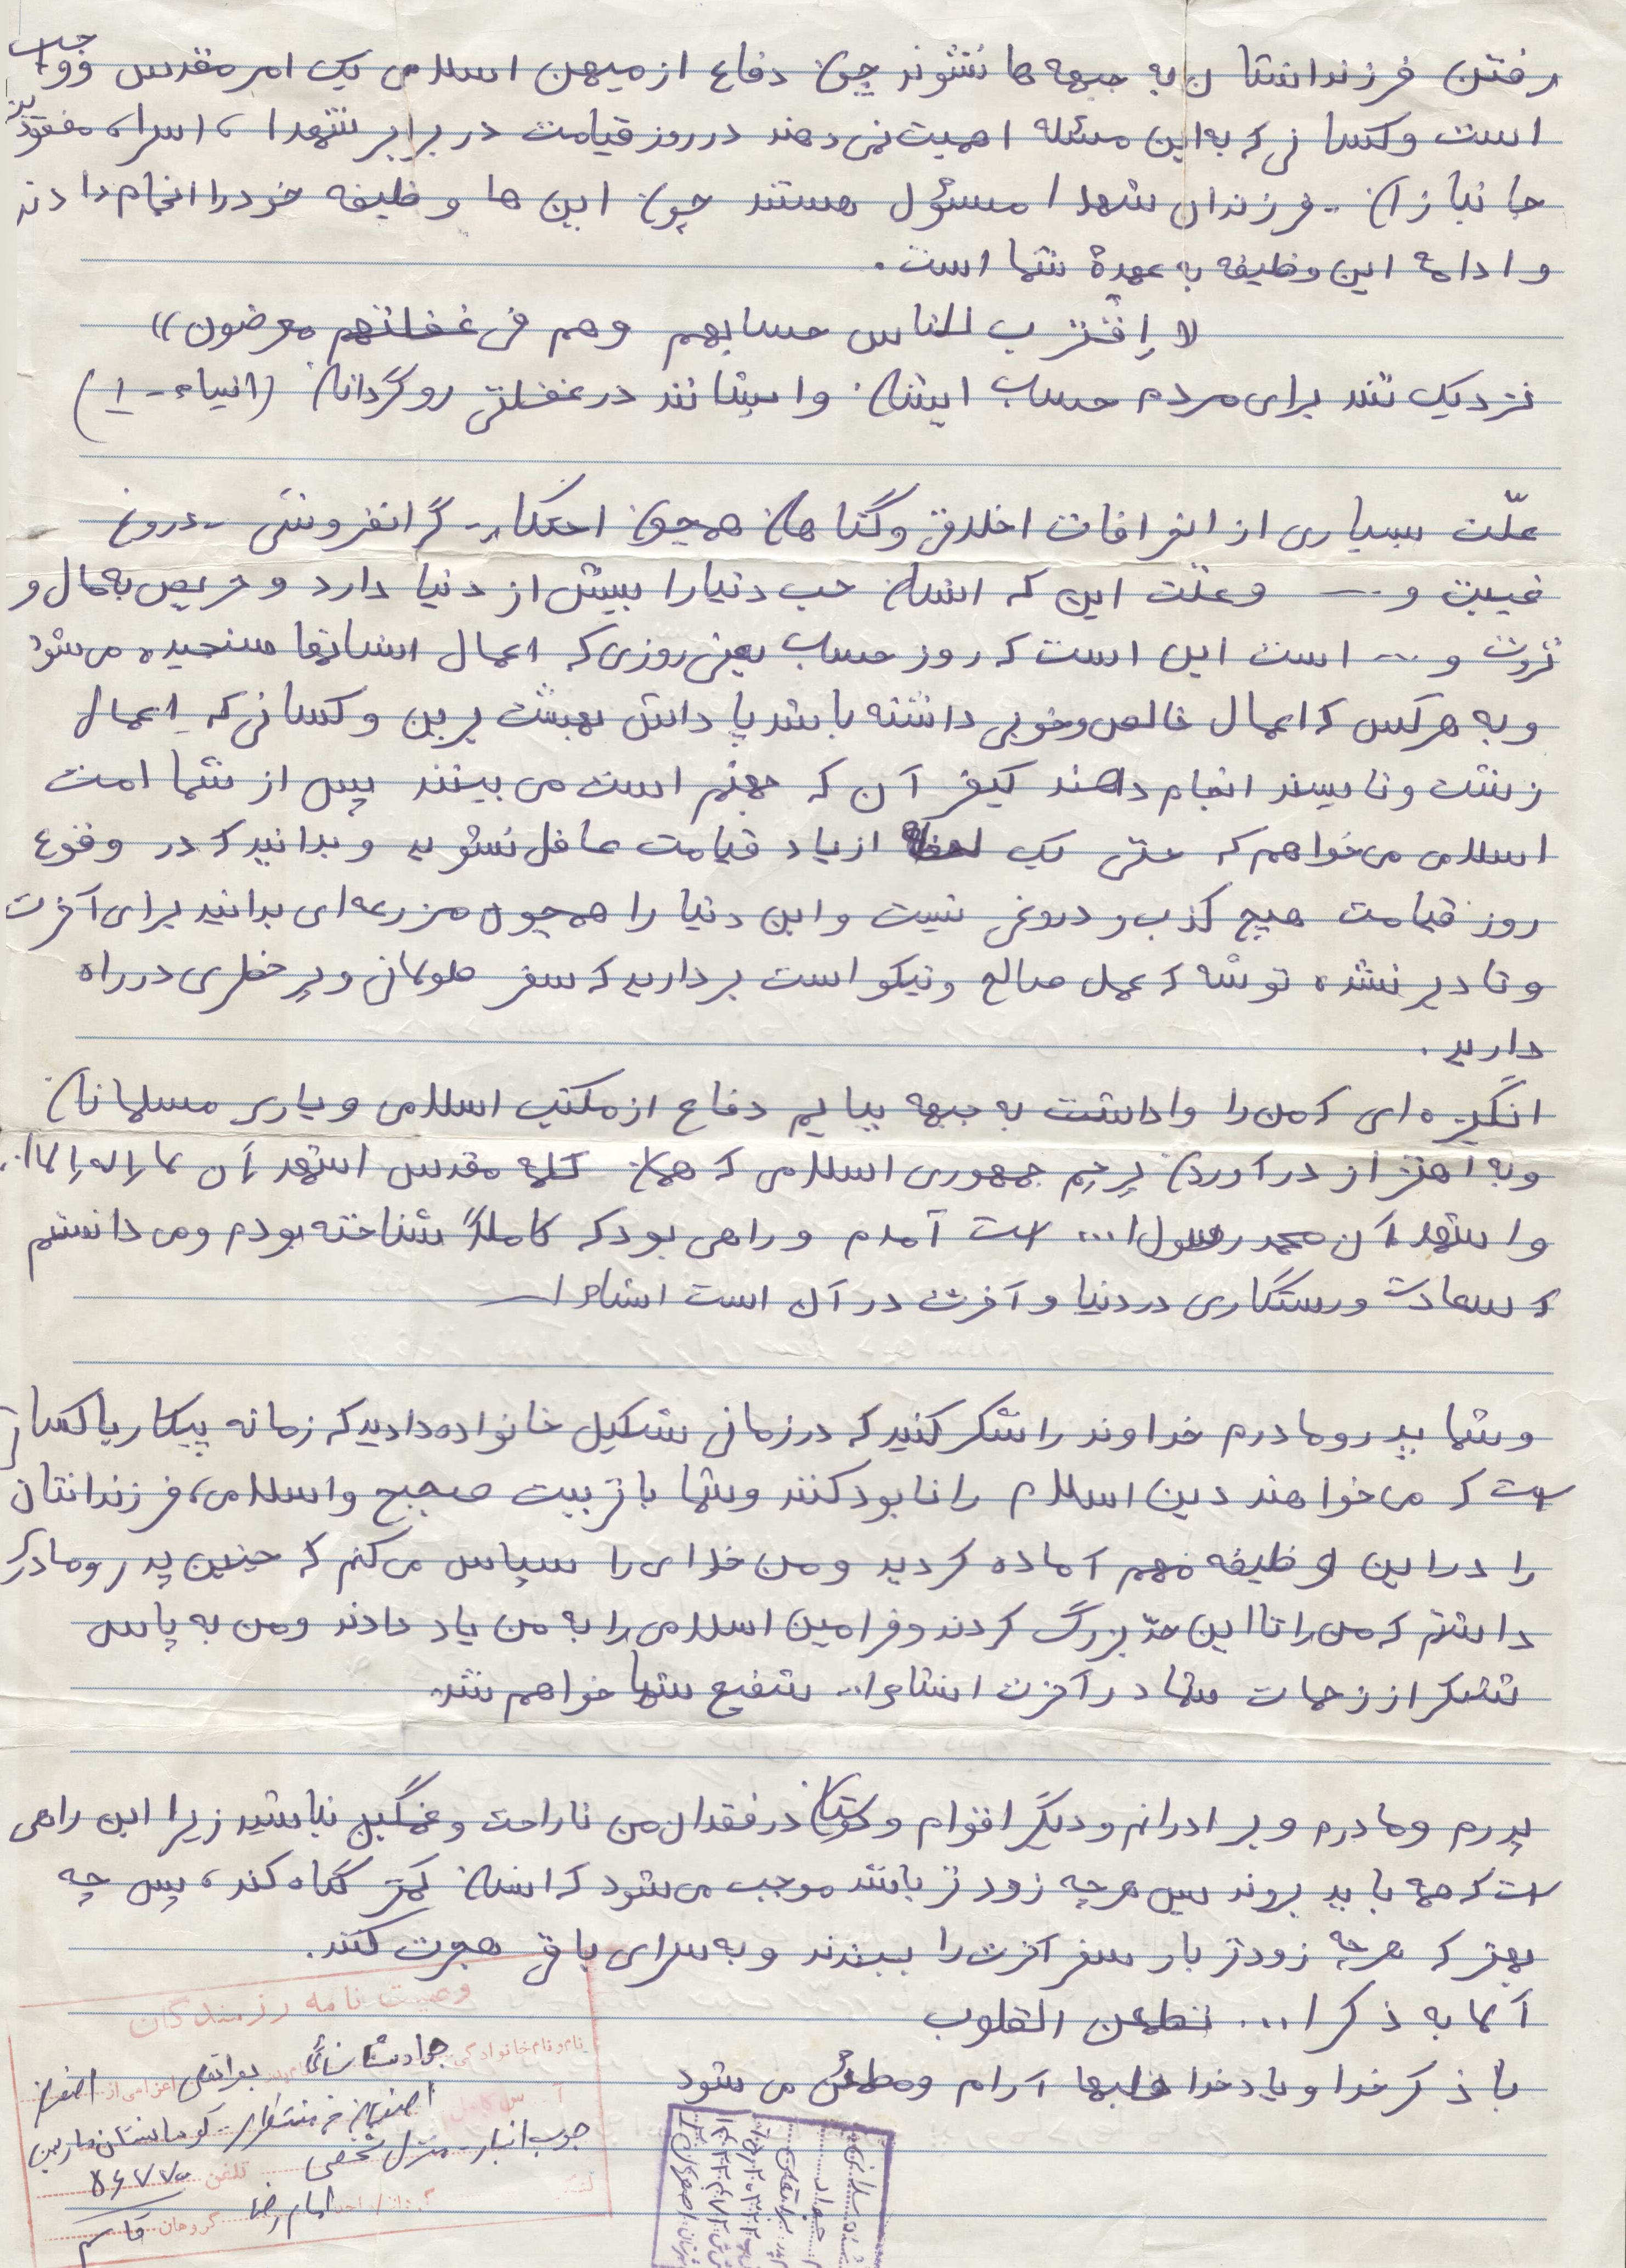 رفتن فرزندانتان به جبهه ها نشوند چون دفاع از میهن اسلامی یک امر مقدس و واجب
است و کسانی که به این مسئله اهمیت نمی دهند در روز قیامت در برابر شهدا، اسراء، مفقودین
جانبازان - فرزندان شهدا مسئول هستند چون این ها وظیفه خود را انجام دادند
و ادامه این وظیفه به عهدۀ شما است.
«اِقْتَرب للناس حسابهم وهم فی غفلتهم معرضون»
نزدیک شد برای مردم حساب ایشان و ایشانند در غفلتی روگردان (انبیاء - ۱)
علّت بسیاری از انحرافات اخلاقی و گناهان همچون احتکار - گرانفروشی - دروغ
غیبت و ... و علّت این که انسان حب دنیا را بیش از دنیا دارد و حریص به مال و
ثروت و ... است این است که روز حساب یعنی روزی که اعمال انسانها سنجیده می شود
و به هر کس که اعمال خالص و خوبی داشته باشد پاداش بهشت برین و کسانی که اعمال
زشت و ناپسند انجام دادهند کیفر آن که جهنم است می بینند پس از شما امت
اسلامی می خواهم که حتی یک لحظه از یاد قیامت غافل نشوید و بدانید که در وقوع
روز قیامت هیچ کذب و دروغی نیست و این دنیا را همچون مزرعه ای بدانید برای آخرت
و تا دیر نشده توشه که عمل صالح و نیکو است بردارید که سفر طولانی و پر خطری در راه
دارید.
انگیزه ای که من را واداشت به جبهه بیایم دفاع از مکتب اسلامی و یاری مسلمانان
و به اهتزاز درآوردن پرچم جمهوری اسلامی که همان کلمه مقدس اشهد أن لا اله الا ا...
و اشهد أن محمد رسول ا... است آمدم و راهی بود که کاملاً شناخته بودم و می دانستم
که سعادت و رستگاری در دنیا و آخرت در آن است انشاء ا...
و شما پدر و مادرم خداوند را شکر کنید که در زمانی تشکیل خانواده دادید که زمانه پیکار با کسانی
است که می خواهند دین اسلام را نابود کنند و شما با تربیت صحیح و اسلامی، فرزندانتان
را در این وظیفه مهم آماده کردید و من خدای را سپاس می کنم که چنین پدر و مادری
داشتم که من را تا این حدّ بزرگ کردند و فرامین اسلامی را به من یاد دادند و من به پاس
تشکر از زحمات شما در آخرت انشاء ا... شفیع شما خواهم شد.
پدرم و مادرم و برادرانم و دیگر اقوام و دوستان در فقدان من ناراحت و غمگین نباشید زیرا این راهی
است که همه باید بروند پس هر چه زودتر باشد موجب می شود که انسان کمتر گناه کند، پس چه
بهتر که هر چه زودتر بار سفر آخرت را ببندند و به سرای باقی هجرت کنند.
آلا به ذکر ا... تطمئن القلوب
با ذکر خدا و یاد خدا قلبها آرام و مطمئن می شود
وصیت نامه رزمندگان
نام و نام خانوادگی جواد
اعزامی از اصفهان
اصفهان خ منتظری - کوهانستان ماربین
جوب انبار - منزل شخصی
تلفن ۵۶۷۷۰
امام رضا
گروهان قاسم